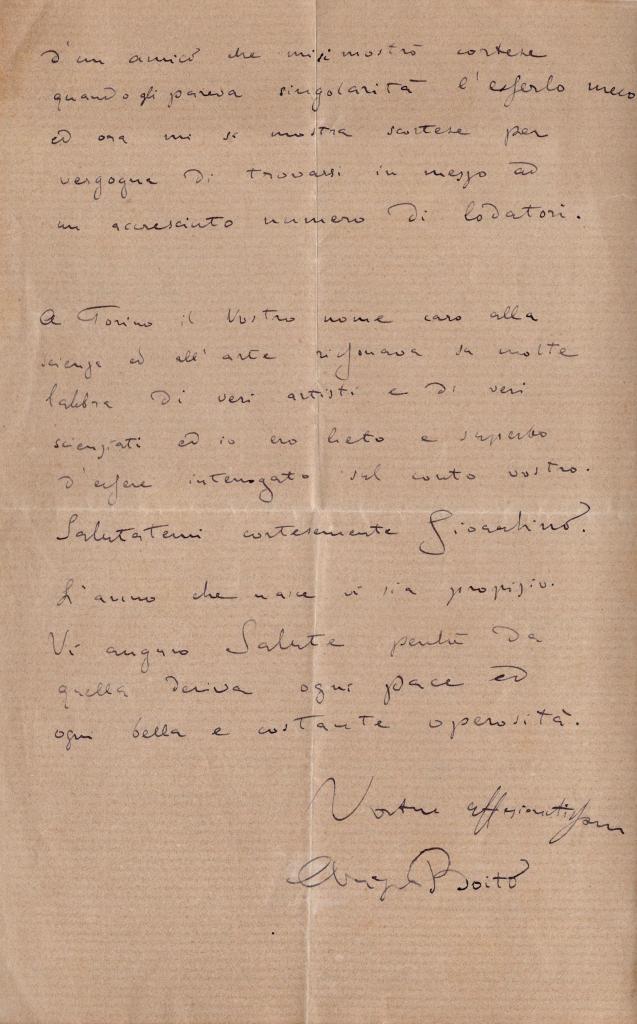 d'un amico che mi si mostrò cortese
quando gli pareva singolarità l'esserlo meco
ed ora mi si mostra scortese per
vergogna di trovarsi in mezzo ad
un accresciuto numero di lodatori.
A Torino il Vostro nome caro alla
scienza ed all'arte risonava su molte
labbra di veri artisti e di veri
scienziati ed io ero lieto e superbo
d'essere interrogato sul conto vostro.
Salutatemi cortesemente Gioachino.
L'anno che nasce vi sia propizio.
Vi auguro Salute perchè da
quella deriva ogni pace ed
ogni bella e costante operosità.
Vostro affezionatissimo
Arrigo Boito